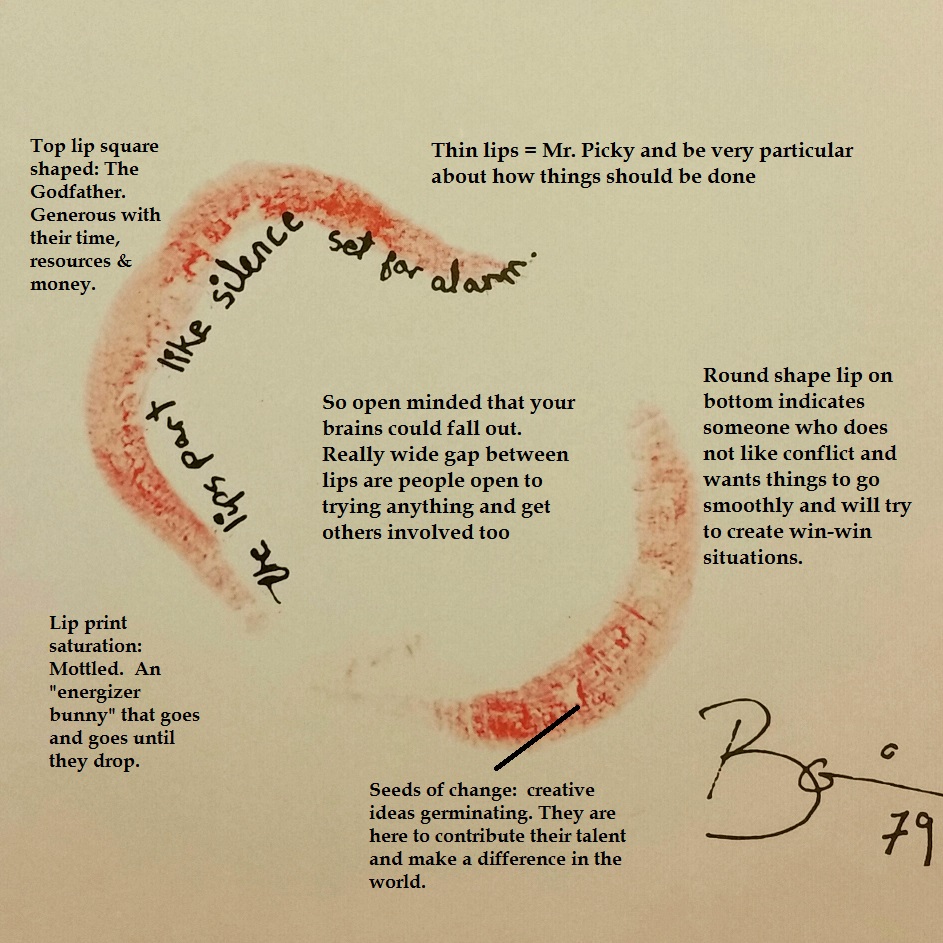 Top lip square
shaped: The
Godfather.
Generous with
their time,
resources &
money.
Thin lips = Mr. Picky and be very particular
about how things should be done
the lips part like silence
set for alarm.
So open minded that your
brains could fall out.
Really wide gap between
lips are people open to
trying anything and get
others involved too
Round shape lip on
bottom indicates
someone who does
not like conflict and
wants things to go
smoothly and will try
to create win-win
situations.
Lip print
saturation:
Mottled.  An
"energizer
bunny" that goes
and goes until
they drop.
Seeds of change:  creative
ideas germinating. They are
here to contribute their talent
and make a difference in the
world.
79